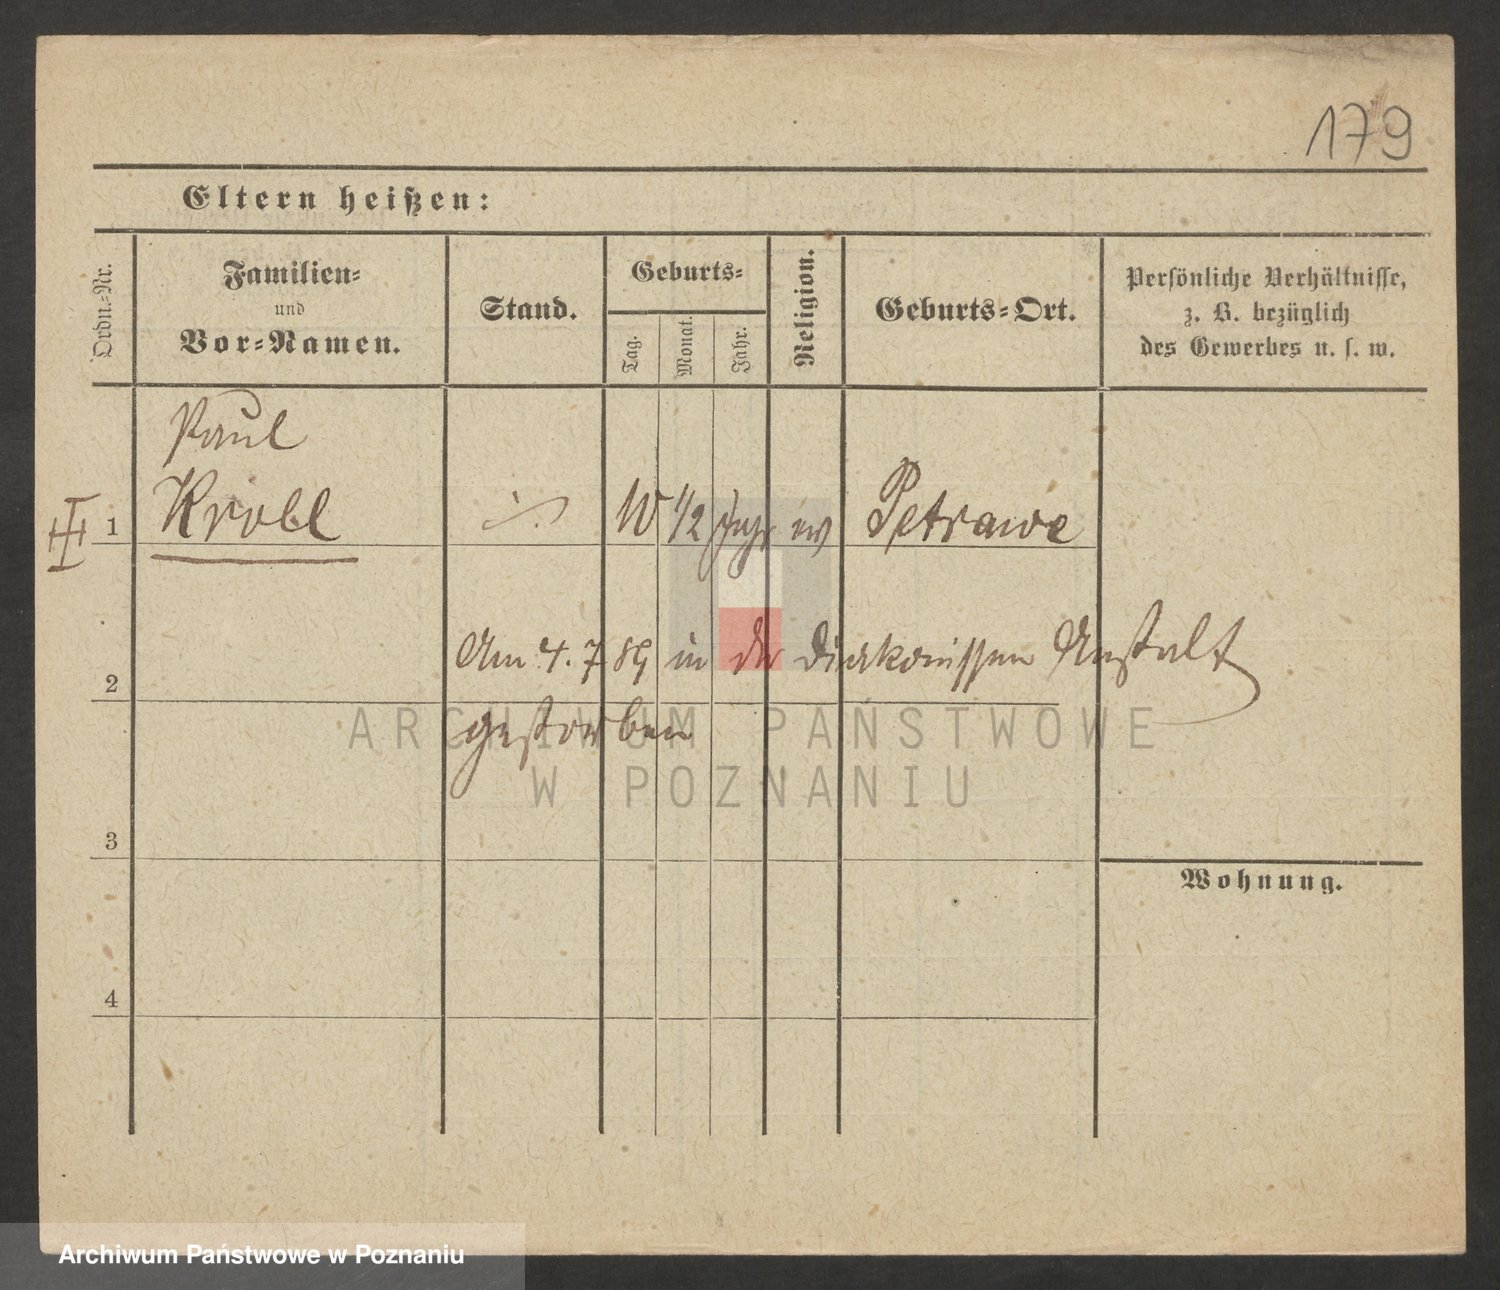 179
Eltern heißen:
Ordn.-Nr.
Familien-
und
Vor-Namen.
Stand.
Geburts-
Tag.
Monat.
Jahr.
Religion.
Geburts-Ort.
Persönliche Verhältnisse,
z. B. bezüglich
des Gewerbes u. s. w.
Paul
1 Krobl 1/2 Jahr ev Petrawe
2 Am 4.7 89 in der Diakonissen Anstalt
gestorben
3
Wohnung.
4
ARCHIWUM PAŃSTWOWE
W POZNANIU
Archiwum Państwowe w Poznaniu